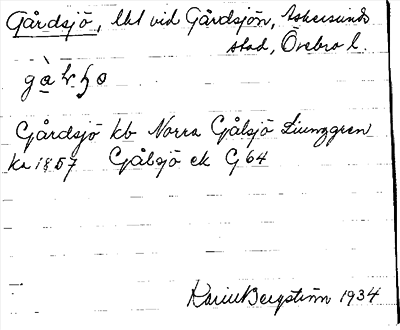 Gårdsjö, lbl vid Gårdsjön, Askersunds
stad, Örebro l.
Gårdsjö kb Norra Gålsjö Ljunggren
ka 1857 Gålsjö ek G 64
Karin Bergström 1934